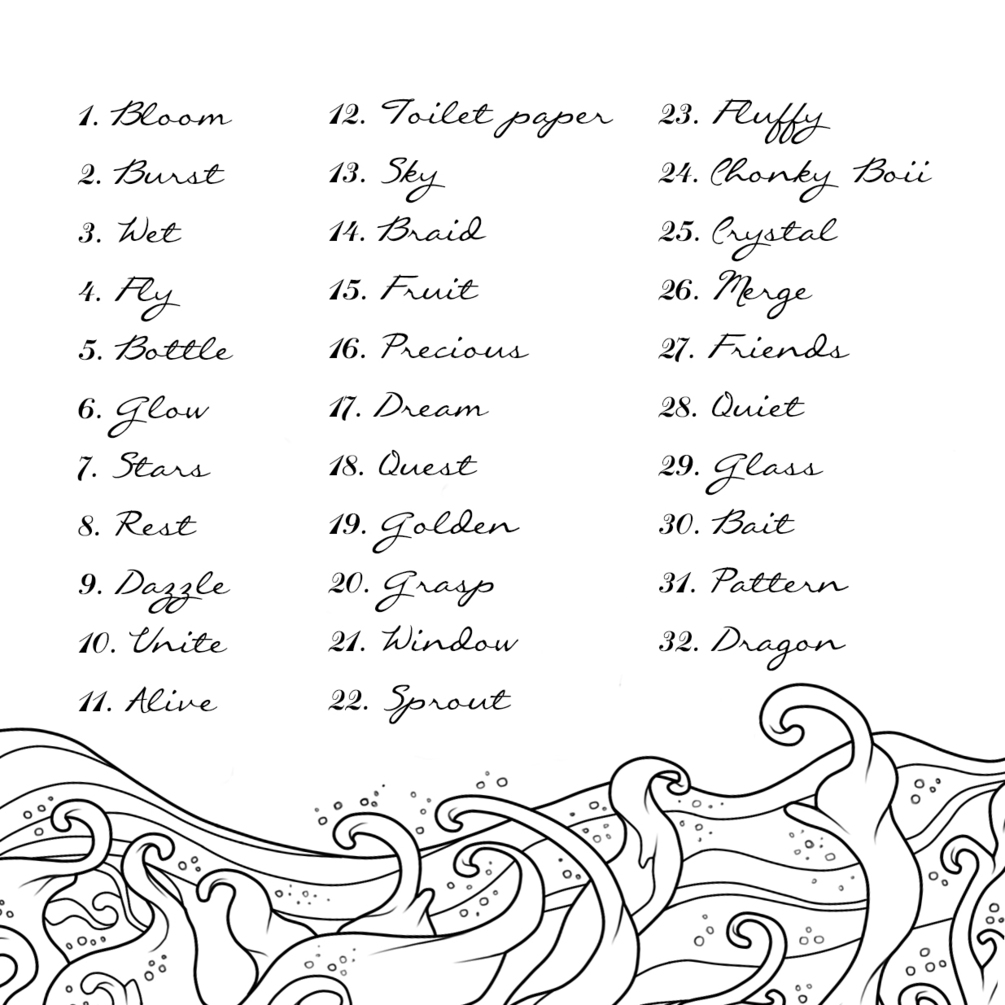 1. Bloom
2. Burst
3. Wet
4. Fly
5. Bottle
6. Glow
7. Stars
8. Rest
9. Dazzle
10. Unite
11. Alive
12. Toilet paper
13. Sky
14. Braid
15. Fruit
16. Precious
17. Dream
18. Quest
19. Golden
20. Grasp
21. Window
22. Sprout
23. Fluffy
24. Chonky Boii
25. Crystal
26. Merge
27. Friends
28. Quiet
29. Glass
30. Bait
31. Pattern
32. Dragon